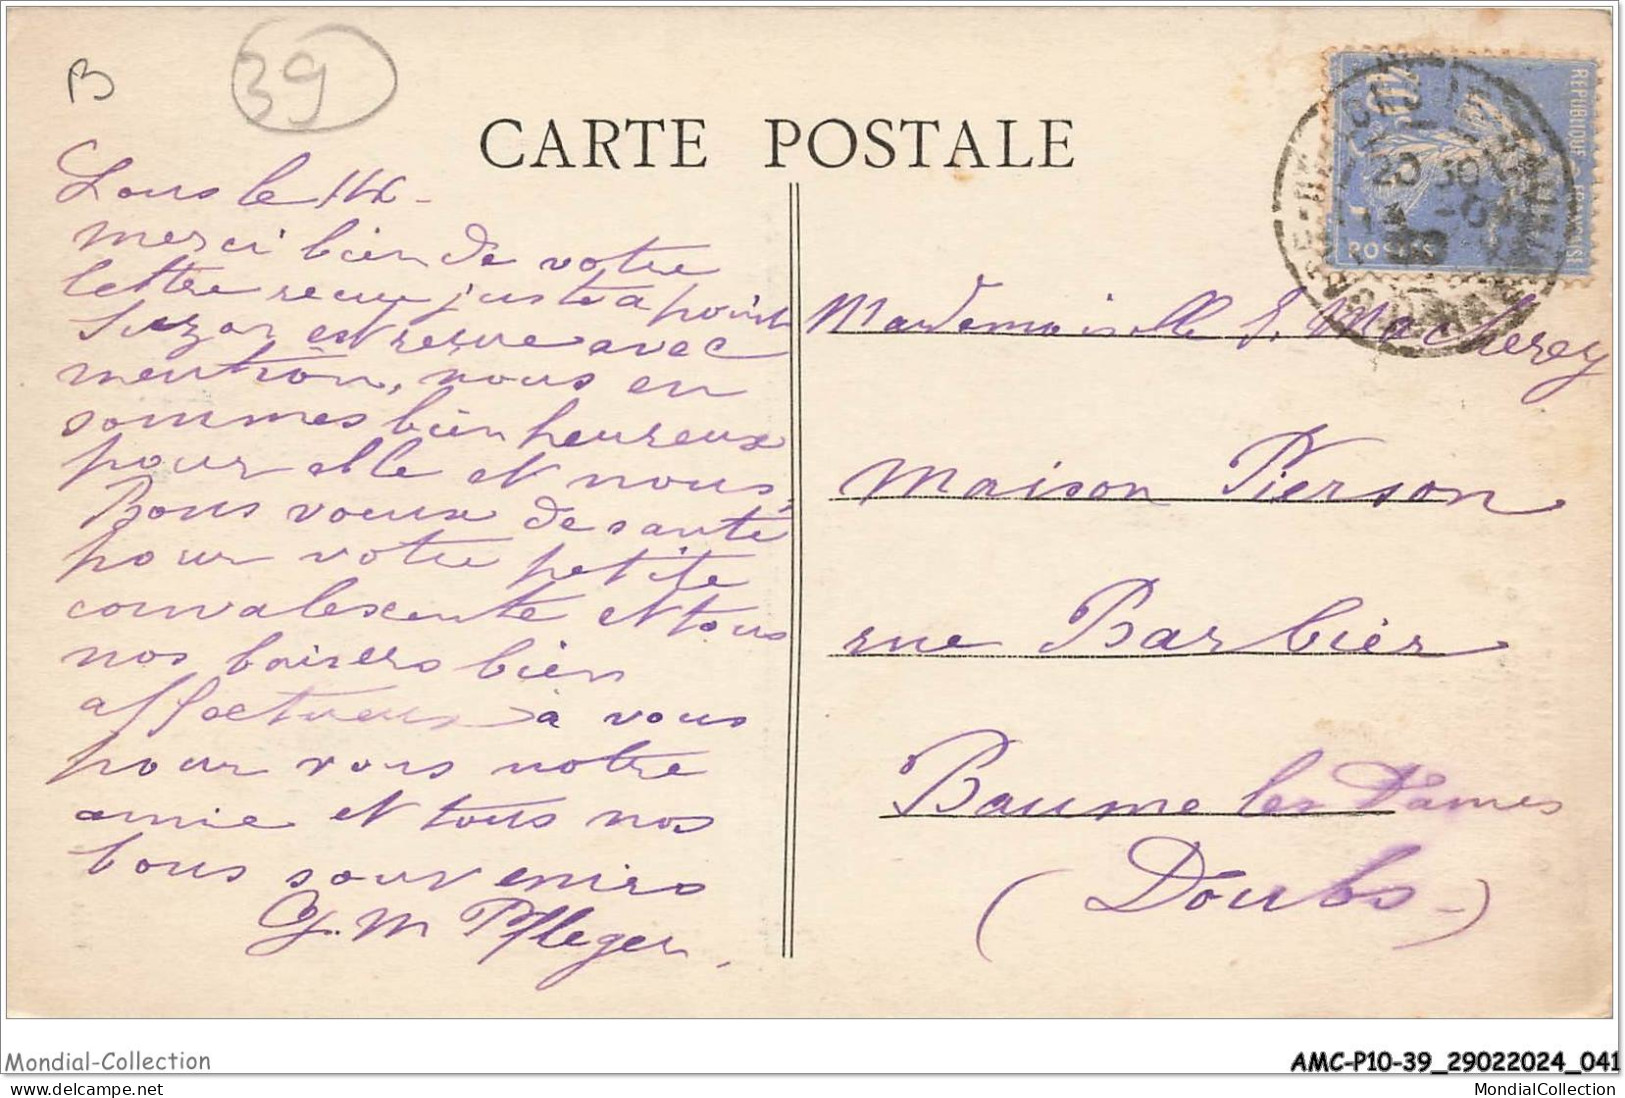 B
39
CARTE POSTALE
REPUBLIQUE FRANÇAISE
POSTES
20 30
Lons le 14 -
merci bien de votre
lettre reçue juste a point
Suzon est reçue avec
mention, nous en
sommes bien heureux
pour elle et nous,
Bons voeux de santé
pour votre petite
convalescente et tous
nos baisers bien
affectueux à vous
pour vous notre
amie et tous nos
bons souvenirs
M Pfleger
Mademoiselle S. Macherey
Maison Pierson
rue Barbier
Baume les Dames
(Doubs-)
Mondial-Collection
AMC-P10-39_29022024_041
the-collection.delcampe.net
MondialCollection